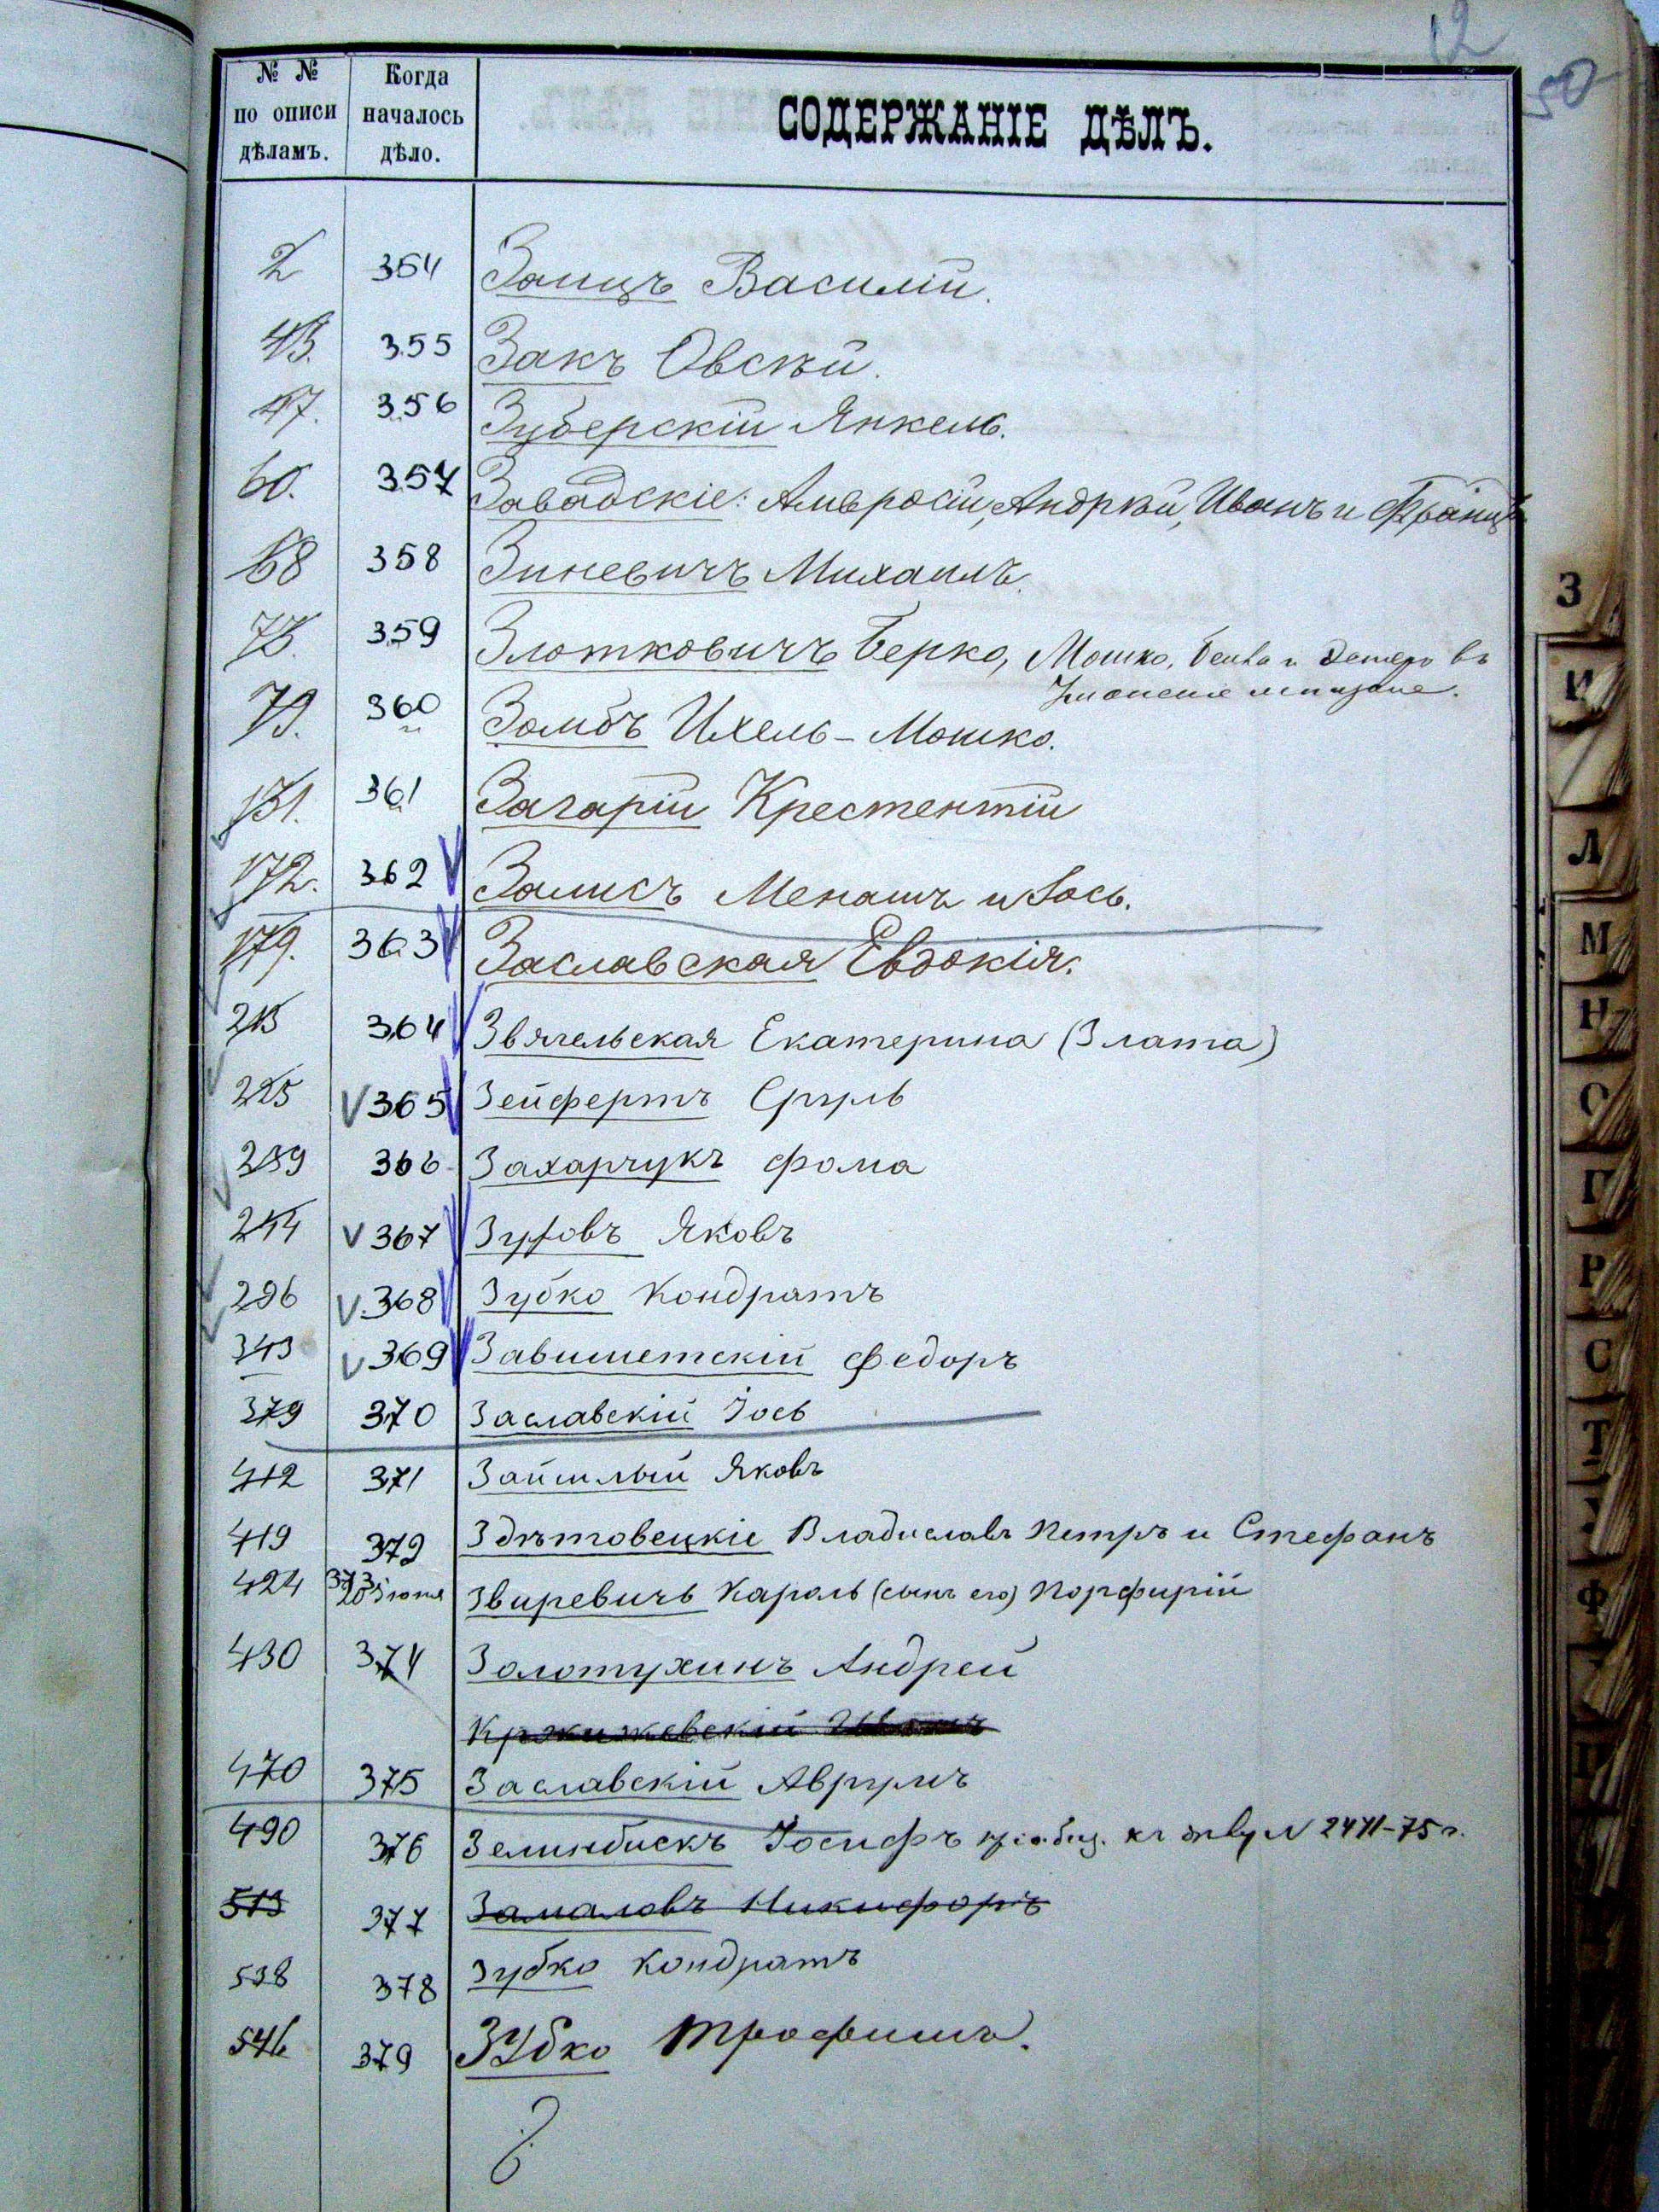 12
50
№ № по описи дѣламъ.
Когда началось дѣло.
СОДЕРЖАНІЕ ДѢЛЪ.
2 354 Заицъ Василій.
43. 355 Закъ Овсѣй.
47. 356 Зуберскій Янкель.
60. 357 Завадскіе: Амвросій, Андрѣй, Иванъ и Францъ
68 358 Зиневичъ Михаилъ.
75. 359 Злотковичъ Берко, Мошко, въ
79. 360 Замбъ Ихель-Мошко.
151. 361 Загарій Крестентій
172. 362 Залисъ Менашъ и Іось.
179. 363 Заславская Евдокія.
213 364 Звягельская Екатерина (Злата)
225 365 Зейфертъ Сруль
239 366 Захарчукъ Фома
244 367 Зуговъ Яковъ
296 368 Зубко Кондратъ
343 369 Федоръ
379 370 Заславскій Іось
412 371 Яковъ
419 372 Здѣтовецкіе Владиславъ Петръ и Стефанъ
424 373 20 Іюня Звиревичъ Кароль (сынъ его) Порфирій
430 374 Золотухинъ Андрей
Кржижевскій
470 375 Заславскій Аврумъ
490 376 Зелинбискъ Іосифъ къ дѣлу N 2471-75 г.
513 377 Замаловъ Никифоръ
538 378 Зубко Кондратъ
546 379 Зубко Трофимъ.
З
И
Л
М
Н
О
П
Р
С
Т
Ф